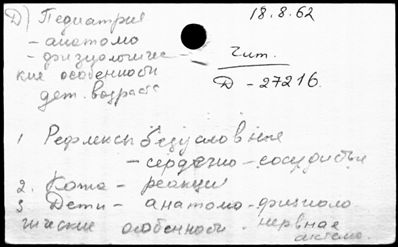 Д) Педиатрия
18.8.62
- анатомо
- физиологичес-
кие особенности
дет. возраста
Чит.
Д - 27216.
1 Рефлексы безусловные
- сердечно - сосудистые
2. Кожа - реакции
3 Дети - анатомо-физиоло
гические особенности. нервная
система.